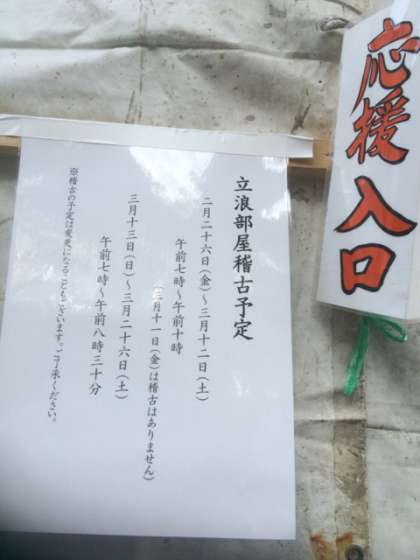 応援入口
立浪部屋稽古予定
二月二十六日(金)〜三月十二日(土)
午前七時〜午前十時
(三月十一日(金)は稽古はありません)
三月十三日(日)〜三月二十六日(土)
午前七時〜午前八時三十分
※稽古の予定は変更になることもございます。ご了承ください。